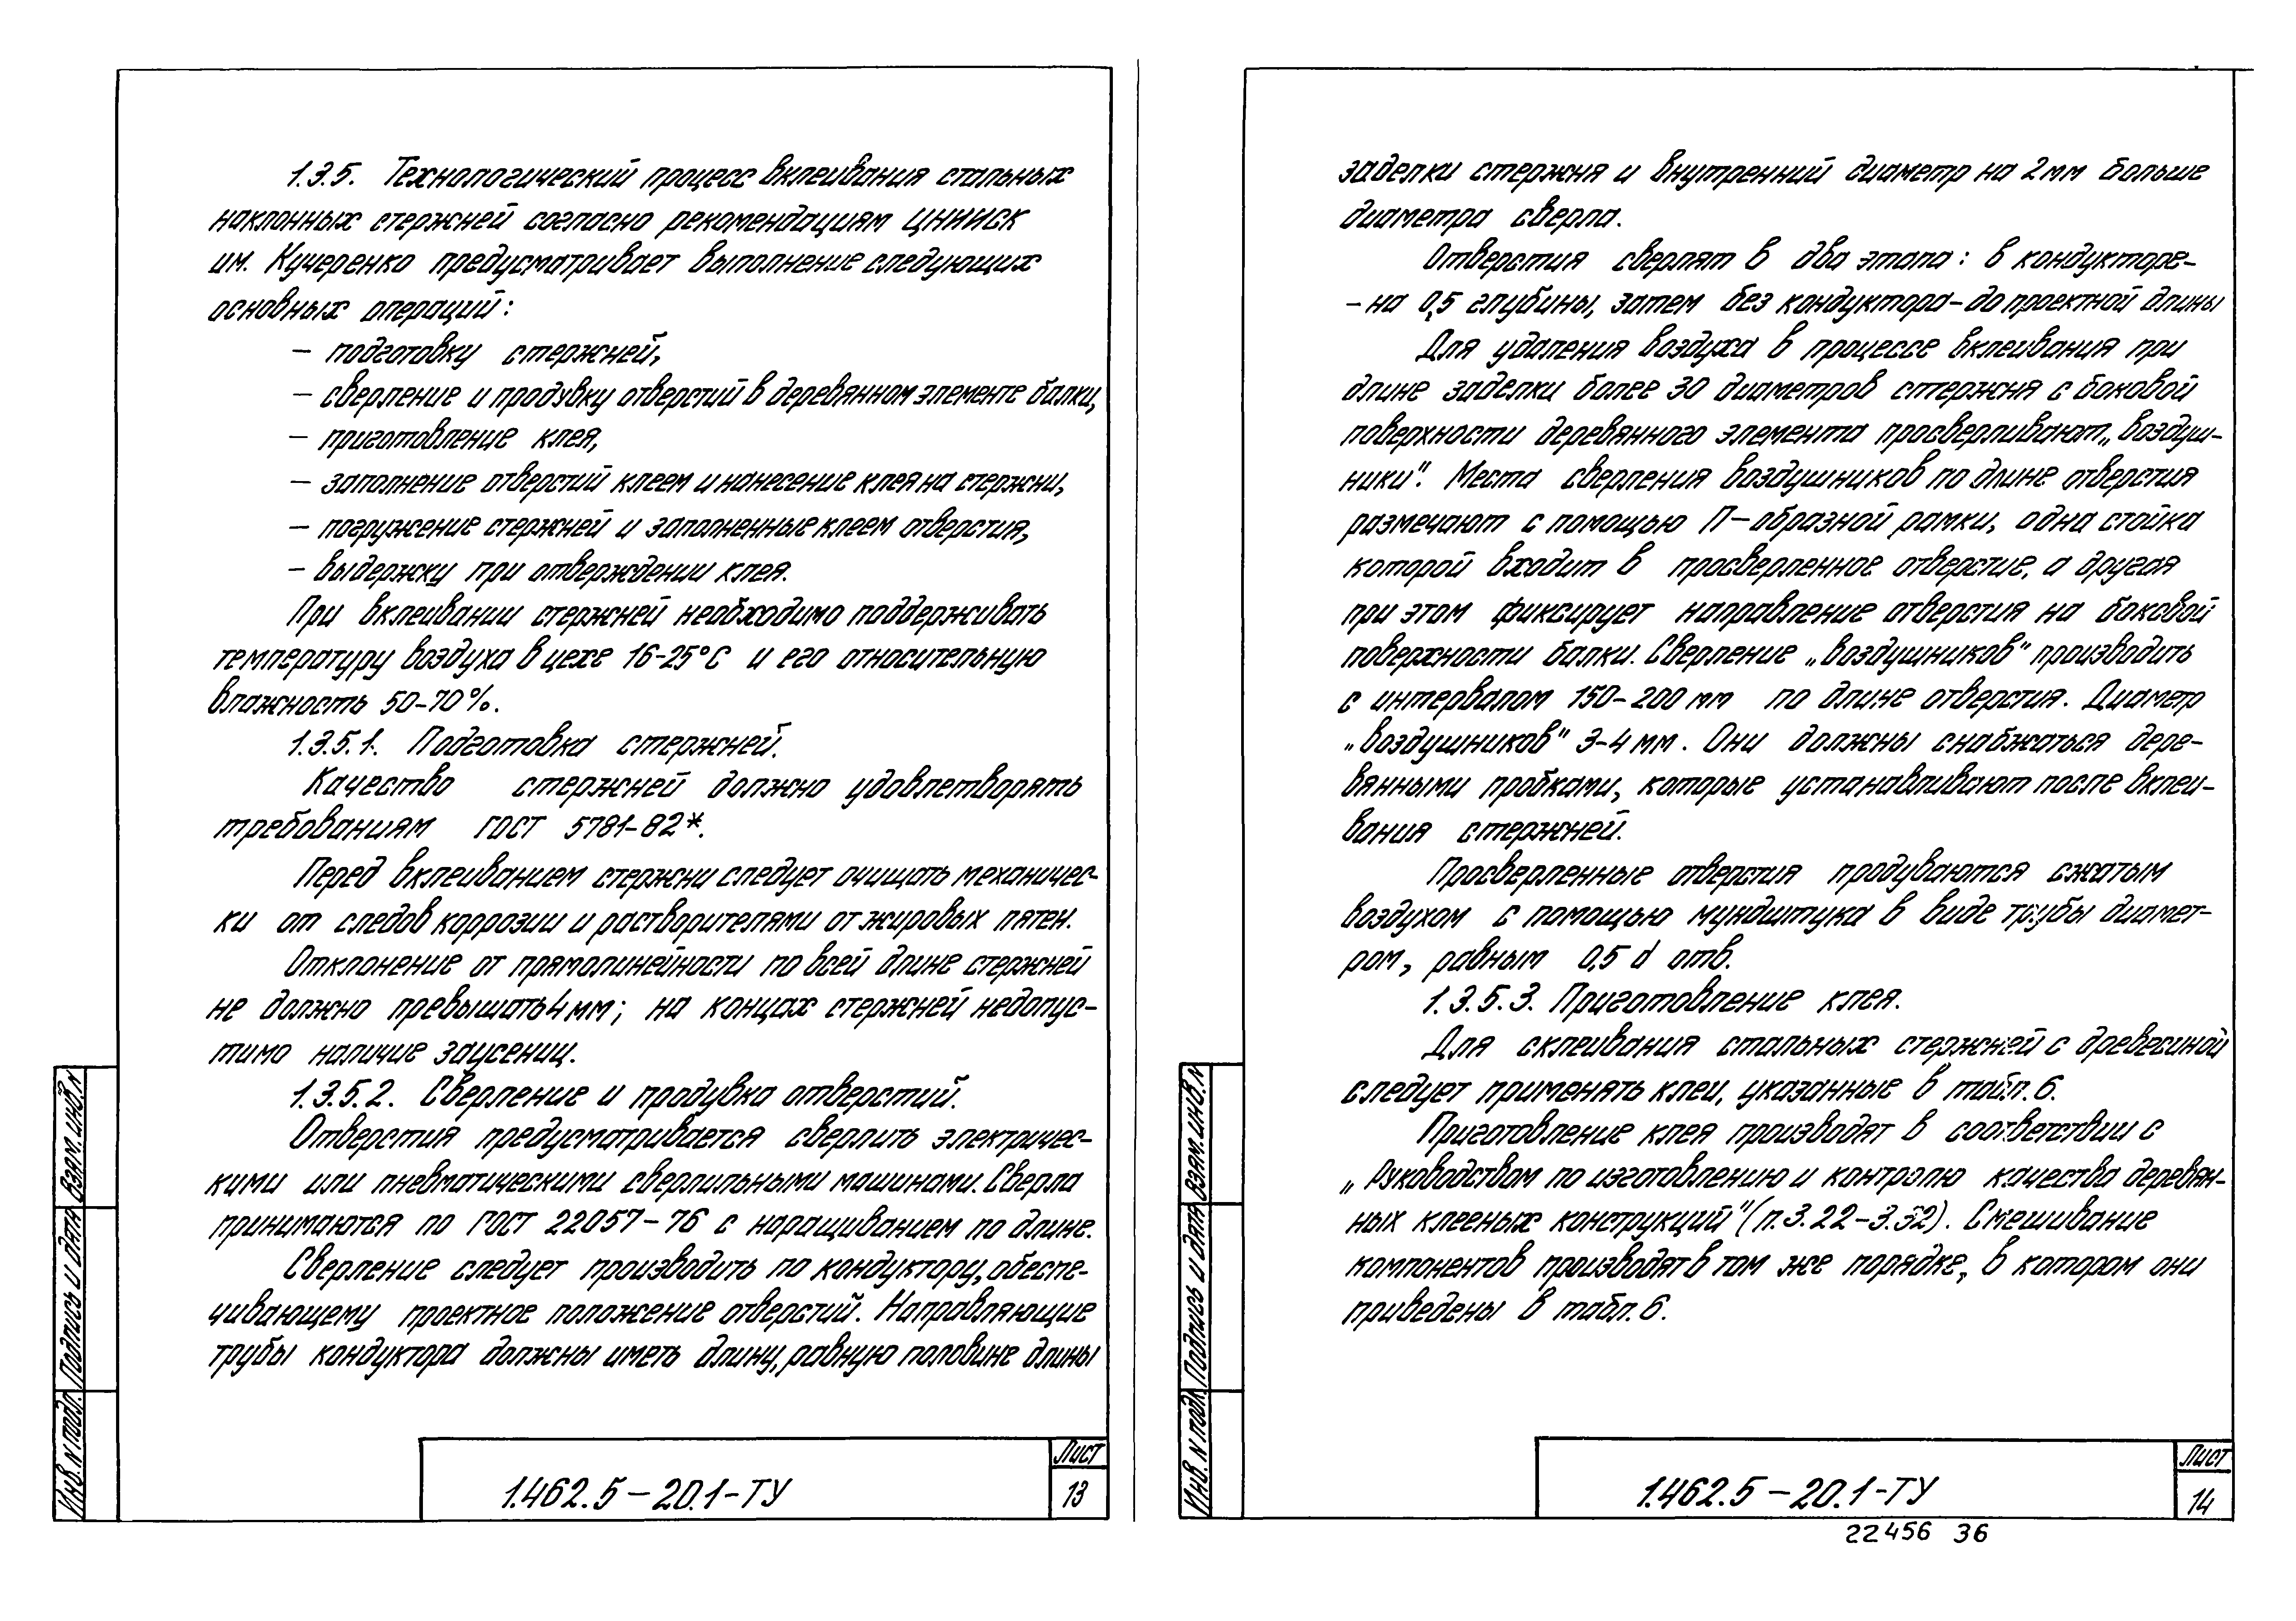 1.3.5. Технологический процесс вклеивания стальных
наклонных стержней согласно рекомендациям ЦНИИСК
им. Кучеренко предусматривает выполнение следующих
основных операций:
– подготовку стержней,
– сверление и продувку отверстий в деревянном элементе балки,
– приготовление клея,
– заполнение отверстий клеем и нанесение клея на стержни,
– погружение стержней и заполненные клеем отверстия,
– выдержку при отверждении клея.
При вклеивании стержней необходимо поддерживать
температуру воздуха в цехе 16-25°С и его относительную
влажность 50-70%.
1.3.5.1. Подготовка стержней.
Качество стержней должно удовлетворять
требованиям ГОСТ 5781-82*.
Перед вклеиванием стержни следует очищать механичес-
ки от следов коррозии и растворителями от жировых пятен.
Отклонение от прямолинейности по всей длине стержней
не должно превышать 4 мм; на концах стержней недопус-
тимо наличие заусениц.
1.3.5.2. Сверление и продувка отверстий.
Отверстия предусматривается сверлить электричес-
кими или пневматическими сверлильными машинами. Сверла
принимаются по ГОСТ 22057-76 с наращиванием по длине.
Сверление следует производить по кондуктору, обеспе-
чивающему проектное положение отверстий. Направляющие
трубы кондуктора должны иметь длину, равную половине длины
Взам. инв. N
Подпись и дата
Инв. N подл.
1.462.5-20.1-ТУ
Лист
13
заделки стержня и внутренний диаметр на 2 мм больше
диаметра сверла.
Отверстия сверлят в два этапа: в кондукторе-
– на 0,5 глубины, затем без кондуктора – до проектной длины
Для удаления воздуха в процессе вклеивания при
длине заделки более 30 диаметров стержня с боковой
поверхности деревянного элемента просверливают „воздуш-
ники". Места сверления воздушников по длине отверстия
размечают с помощью П-образной рамки, одна стойка
которой входит в просверленное отверстие, а другая
при этом фиксирует направление отверстия на боковой
поверхности балки. Сверление „воздушников" производить
с интервалом 150-200 мм по длине отверстия. Диаметр
„воздушников" 3-4 мм. Они должны снабжаться дере-
вянными пробками, которые устанавливают после вклеи-
вания стержней.
Просверленные отверстия продуваются сжатым
воздухом с помощью мундштука в виде трубы диамет-
ром, равным 0,5 d отв.
1.3.5.3. Приготовление клея.
Для склеивания стальных стержней с древесиной
следует применять клеи, указанные в табл. 6.
Приготовление клея производят в соответствии с
„Руководством по изготовлению и контролю качества деревян-
ных клееных конструкций" (п. 3.22-3.32). Смешивание
компонентов производят в том же порядке, в котором они
приведены в табл. 6.
Взам. инв. N
Подпись и дата
Инв. N подл.
1.462.5-20.1-ТУ
Лист
14
22456 36